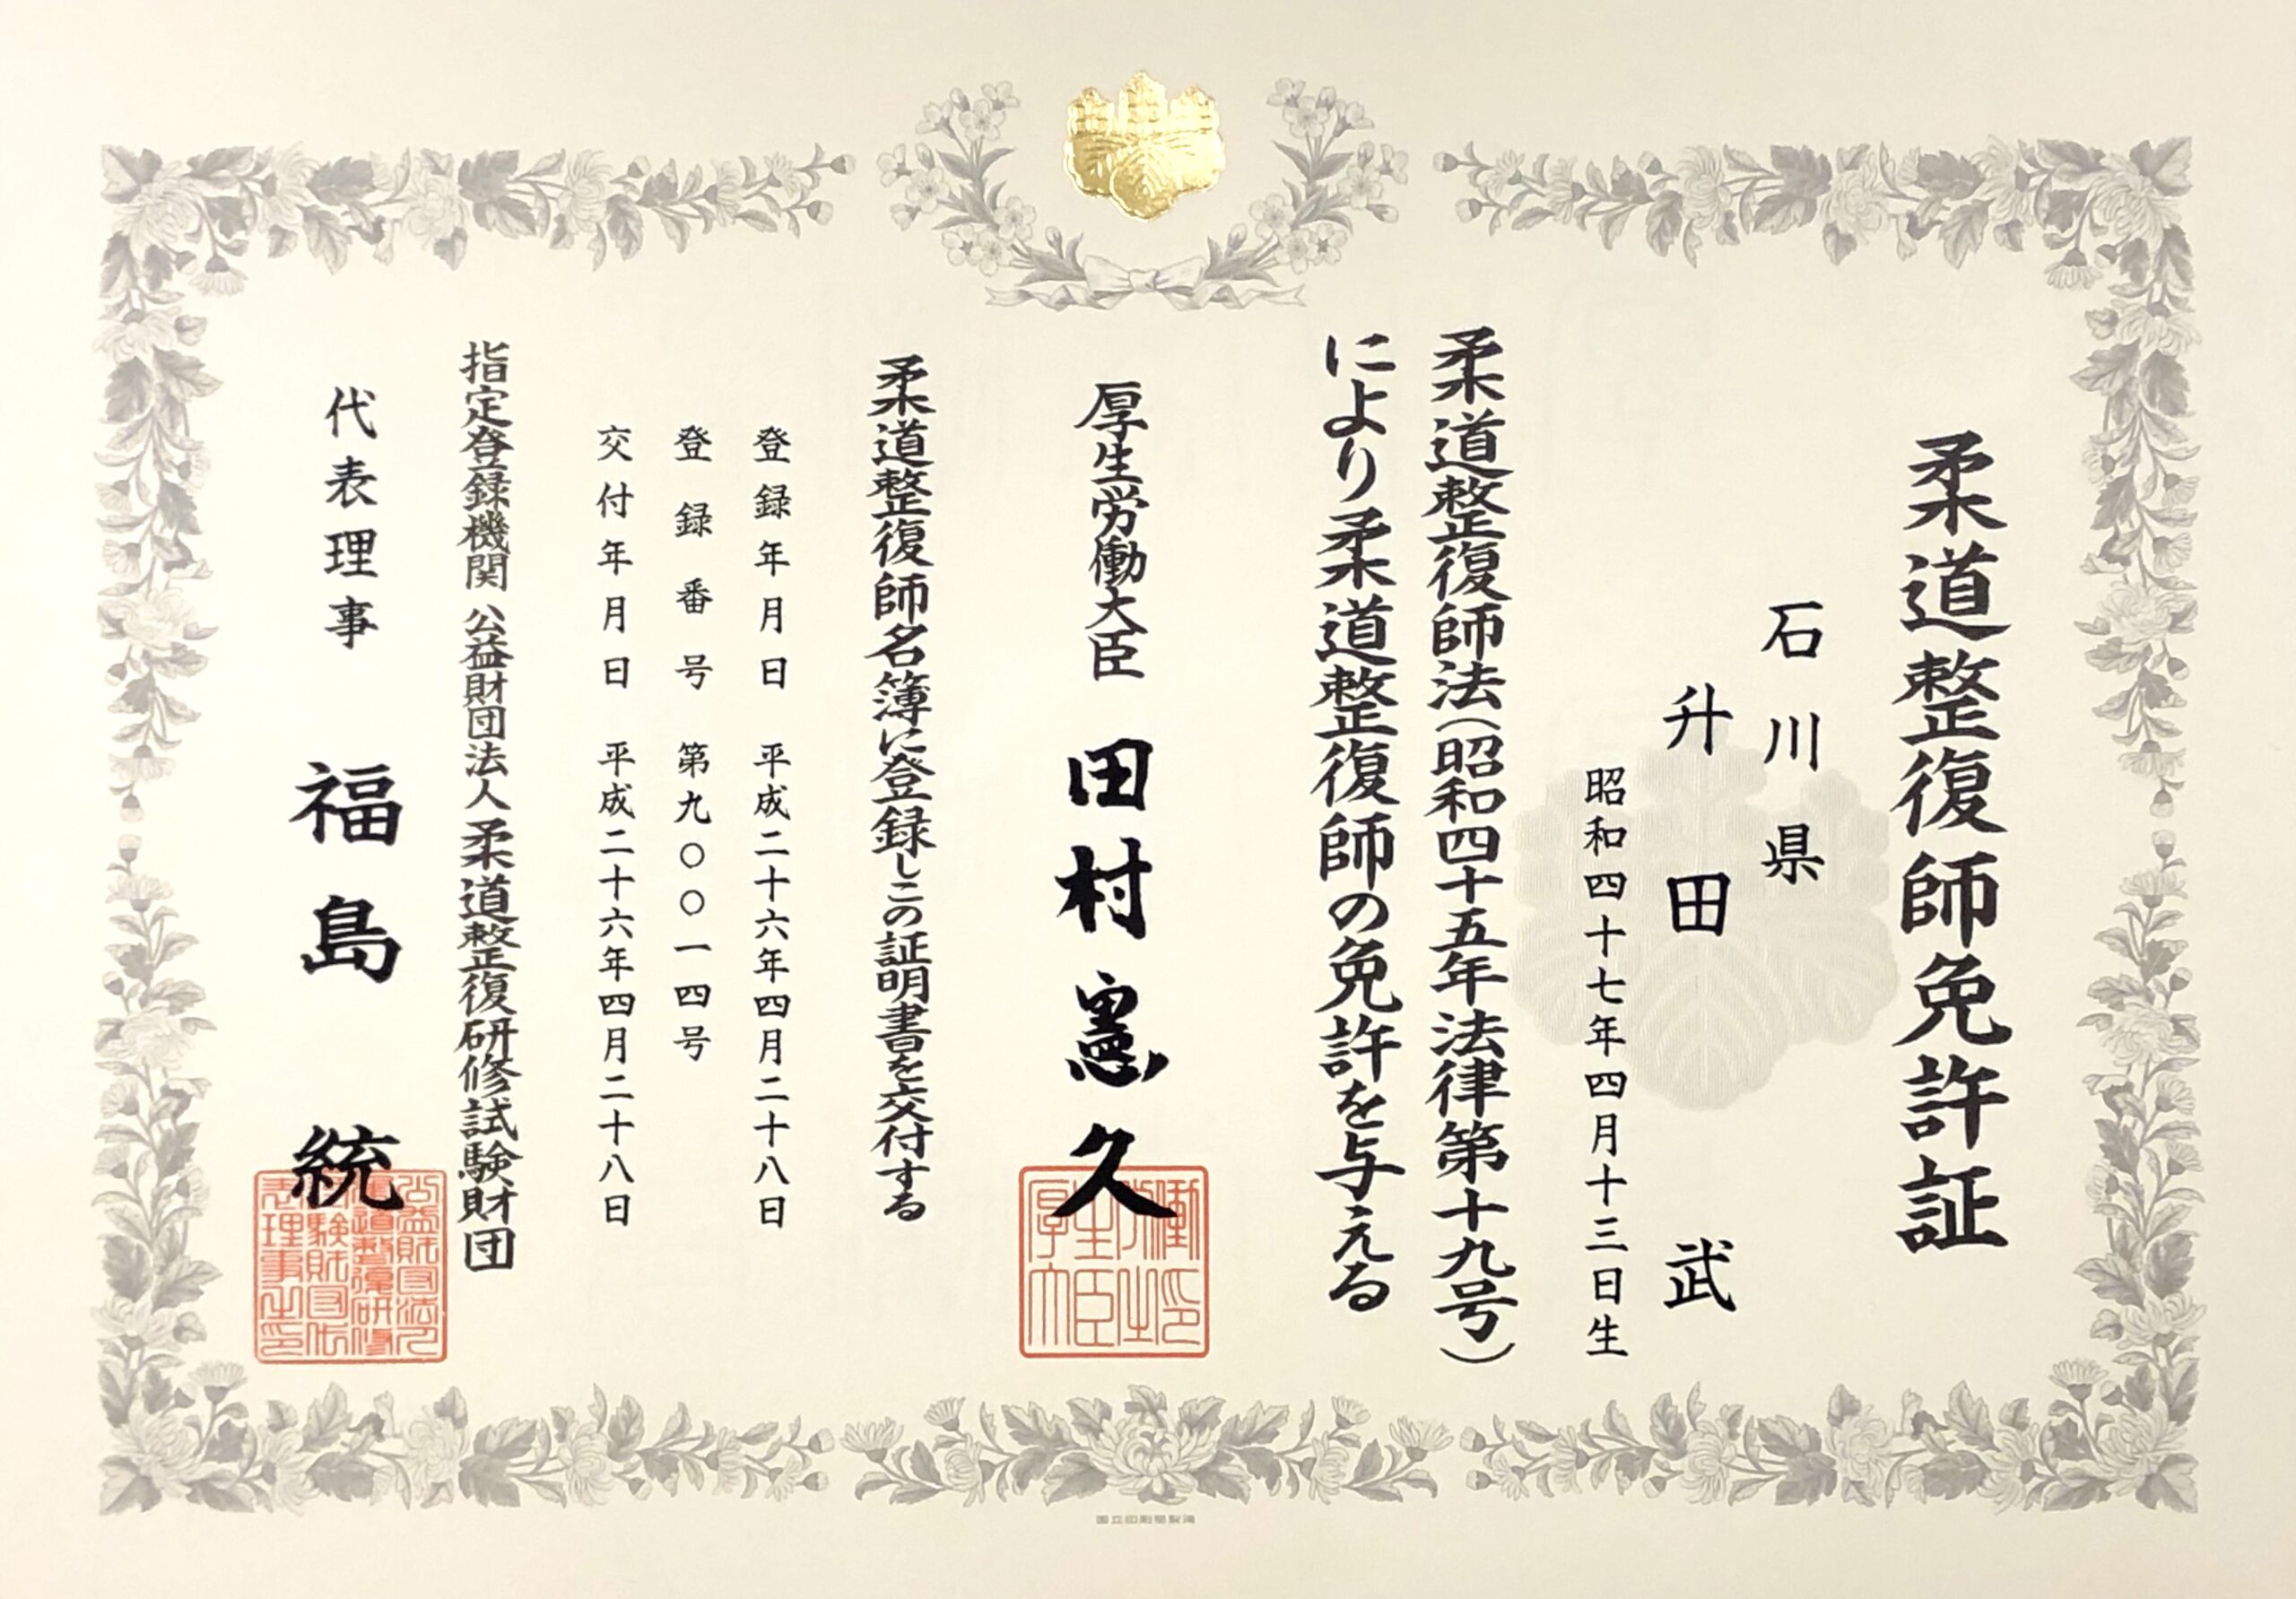 柔道整復師免許証
石川県
升田武
昭和四十七年四月十三日生
柔道整復師法(昭和四十五年法律第十九号)
により柔道整復師の免許を与える
厚生労働大臣 田村憲久
柔道整復師名簿に登録しこの証明書を交付する
登録年月日 平成二十六年四月二十八日
登録番号 第九〇〇一四号
交付年月日 平成二十六年四月二十八日
指定登録機関 公益財団法人 柔道整復研修試験財団
代表理事 福島統
国立印刷局製造